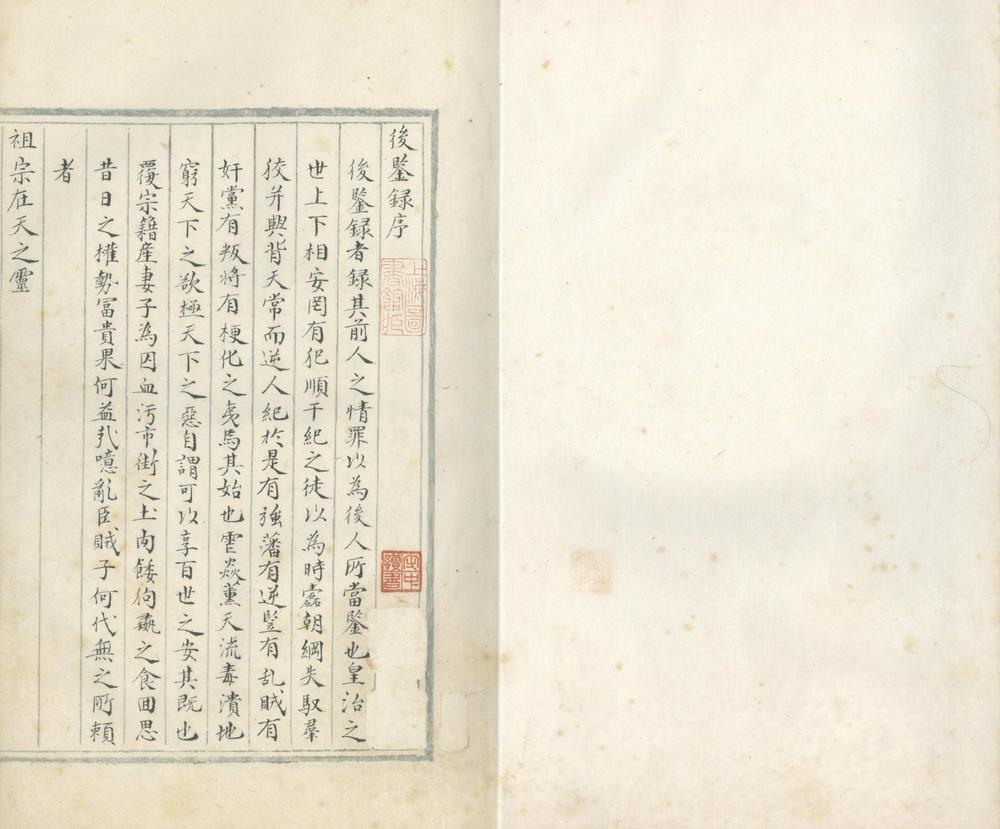 後鑒録序
後鑒録者録其前人之情罪以為後人所當鑒也皇治之
世上下相安罔有犯順干紀之徒以為時蠹朝綱失馭羣
狡并興背天常而逆人紀於是有強藩有逆豎有乱賊有
奸黨有叛將有梗化之夷焉其始也雹焱薰天流毒潰地
窮天下之欲極天下之惡自謂可以享百世之安其既也
覆宗籍産妻子為囚血污市街之土肉餧狗彘之食囬思
昔日之權勢冨貴果何益㢤噫亂臣賊子何代無之所頼
者
祖宗在天之靈
上海圖書館藏